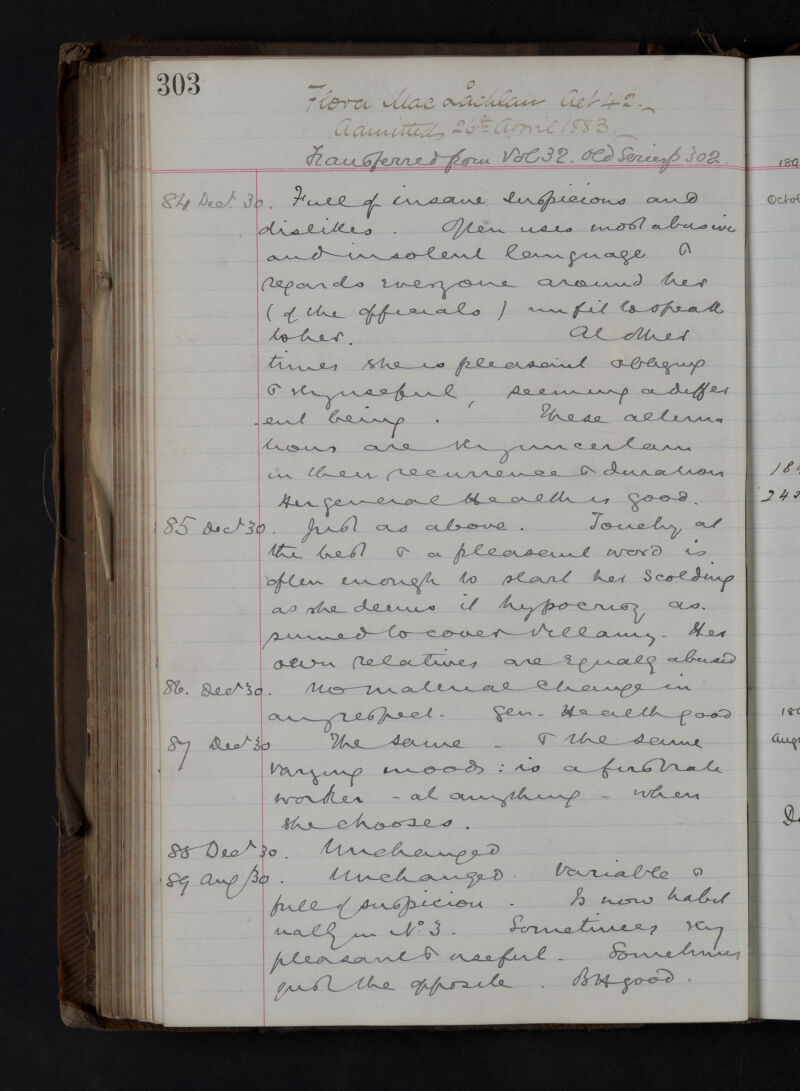 303
Flora Mac Lachlan Aet 42.
Admitted 26th April 1883.
Transferred from Vol 32. Old Series p 302.
84 Decr. 30. Full of insane suspicions and
dislikes. Often uses most abusive
and insolent language &
regards everyone around her
(of the officials) unfit to speak
to her. At other
times she is pleasant obliging
& very useful, seeming a differ
ent being. These alterna
tions are very uncertain
in their recurrence & duration
Her general Health is good.
85 Decr 30. Just as above. Touchy at
the best & a pleasant word is
often enough to start her scolding
as she deems it hypocrisy as-
sumed to cover villany. Her
own relatives are equally abused
86. Decr 30. No material change in
any respect. Gen. Health good
87 Decr 30 The same - & the same
varying moods: is a first rate
worker - at anything - when
she chooses.
88 Decr 30. Unchanged
89 Aug /30. Unchanged. Variable &
full of suspicion. Is now habit
ually in No 3. Sometimes very
pleasant & useful. Sometimes
just the opposite. BH good.
189
Octob
189
242
Augu